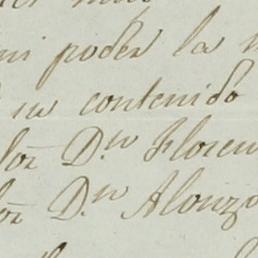 mi poder la
su contenido
por D.n Floren
por D.n Alonzo